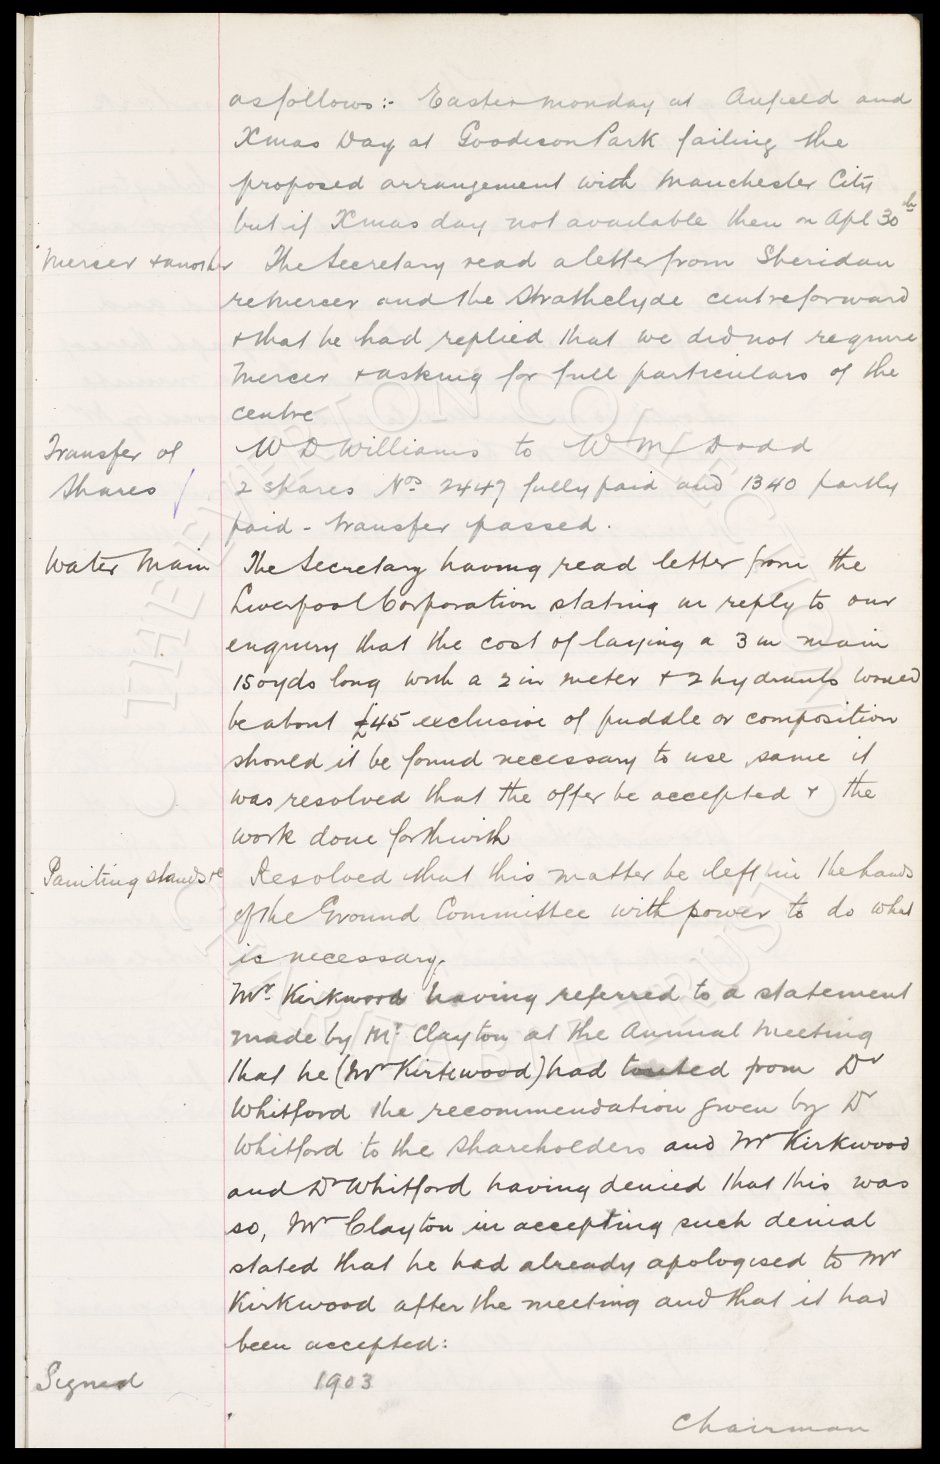 as follows:- Easter monday at Anfield and
Xmas Day at Goodison Park failing the
proposed arrangement with Manchester City
but if Xmas day not available then on Apl 30th
Mercer & another The Secretary read a letter from Sheridan
re Mercer and the Strathclyde centreforward
& that he had replied that we did not require
Mercer & asking for full particulars of the
centre
Transfer of W D Williams to Wm Dodd
Shares 2 shares Nos 2447 fully paid and 1340 partly
paid - transfer passed.
Water Main The Secretary having read letter from the
Liverpool Corporation stating in reply to our
enquiry that the cost of laying a 3 in main
150 yds long with a 2 in meter & 2 hydrants would
be about £45 exclusive of puddle or composition
should it be found necessary to use same it
was resolved that the offer be accepted & the
work done forthwith
Painting stands &c Resolved that this matter be left in the hands
of the Ground Committee with power to do what
is necessary.
Mr Kirkwood having referred to a statement
made by Mr Clayton at the Annual Meeting
that he (Mr Kirkwood) had touted from Dr
Whitford the recommendation given by Dr
Whitford to the Shareholders and Mr Kirkwood
and Dr Whitford having denied that this was
so, Mr Clayton in accepting such denial
stated that he had already apologised to Mr
Kirkwood after the meeting and that it had
been accepted:
Signed 1903
Chairman
THE EVERTON COLLECTION
CHARITABLE TRUST